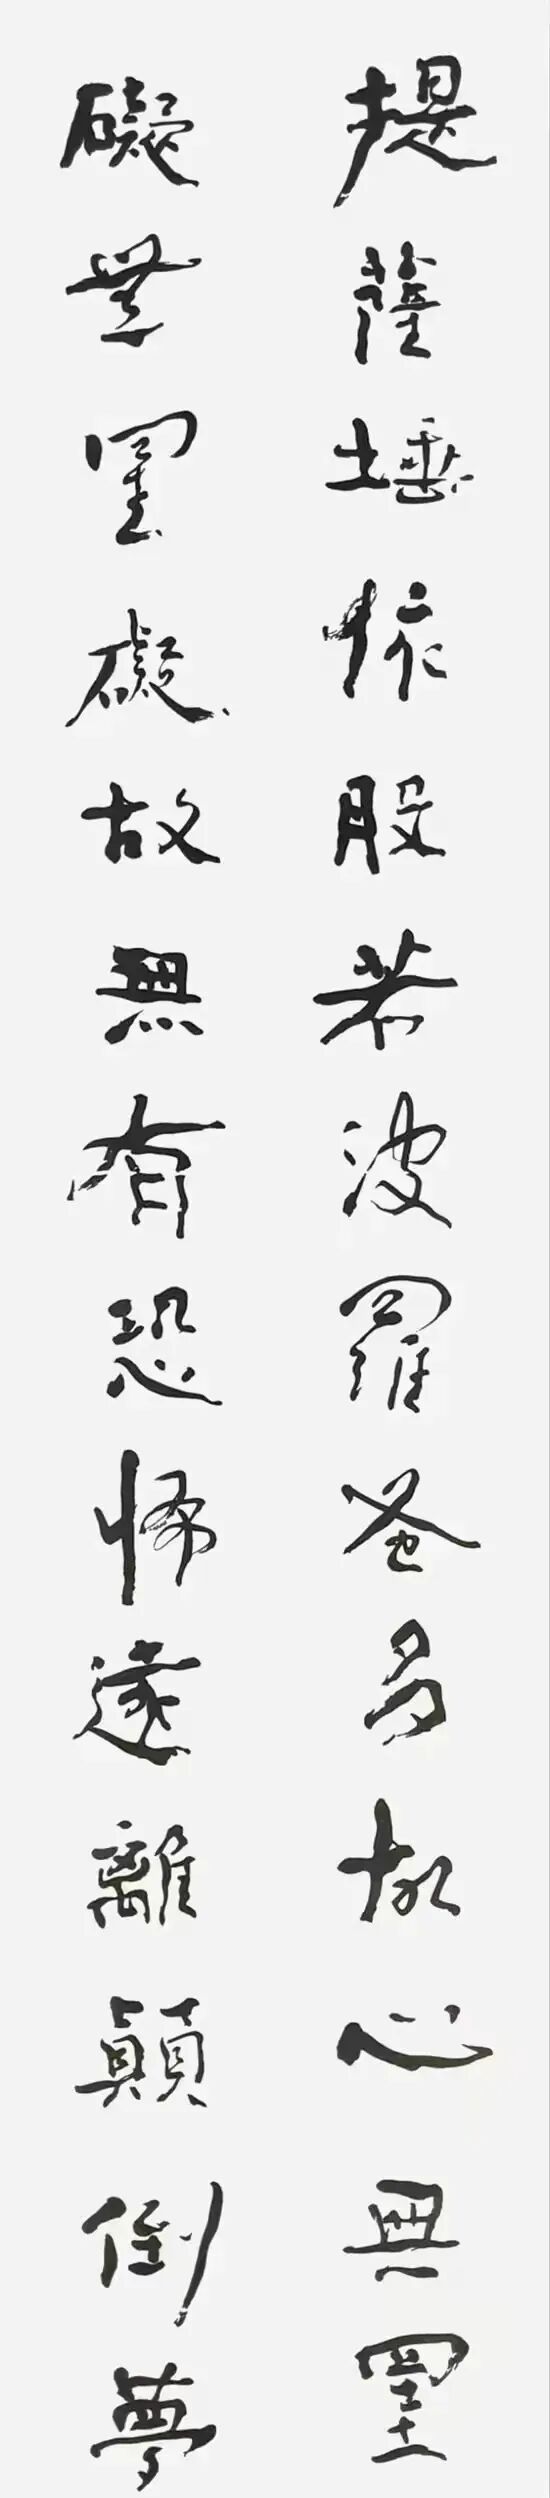 提薩埵依般若波羅蜜多故心無罣
礙無罣礙故無有恐怖遠離顛倒夢